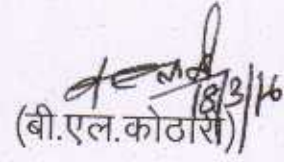 18/3/16
(बी.एल.कोठारी)